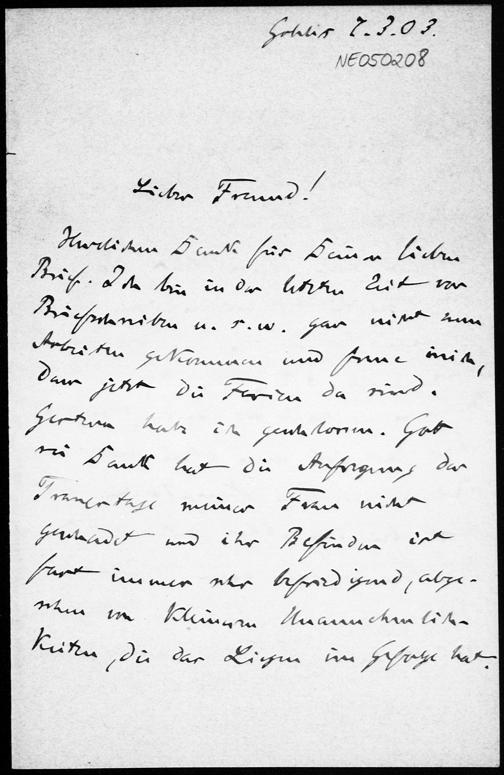 Gohlis 7.3.03.
NE050208
Lieber Freund!
Herzlichen Dank für Deinen lieben
Brief. Ich bin in der letzten Zeit vor
Briefschreiben u. s. w. gar nicht zum
Arbeiten gekommen und freue mich,
dass jetzt die Ferien da sind.
Gestern habe ich geschlossen. Gott
sei Dank hat die Aufregung der
Trauertage meiner Frau nicht
geschadet und ihr Befinden ist
fast immer sehr befriedigend, abge-
sehen von kleineren Unannehmlich-
keiten, die das Liegen im Gefolge hat.